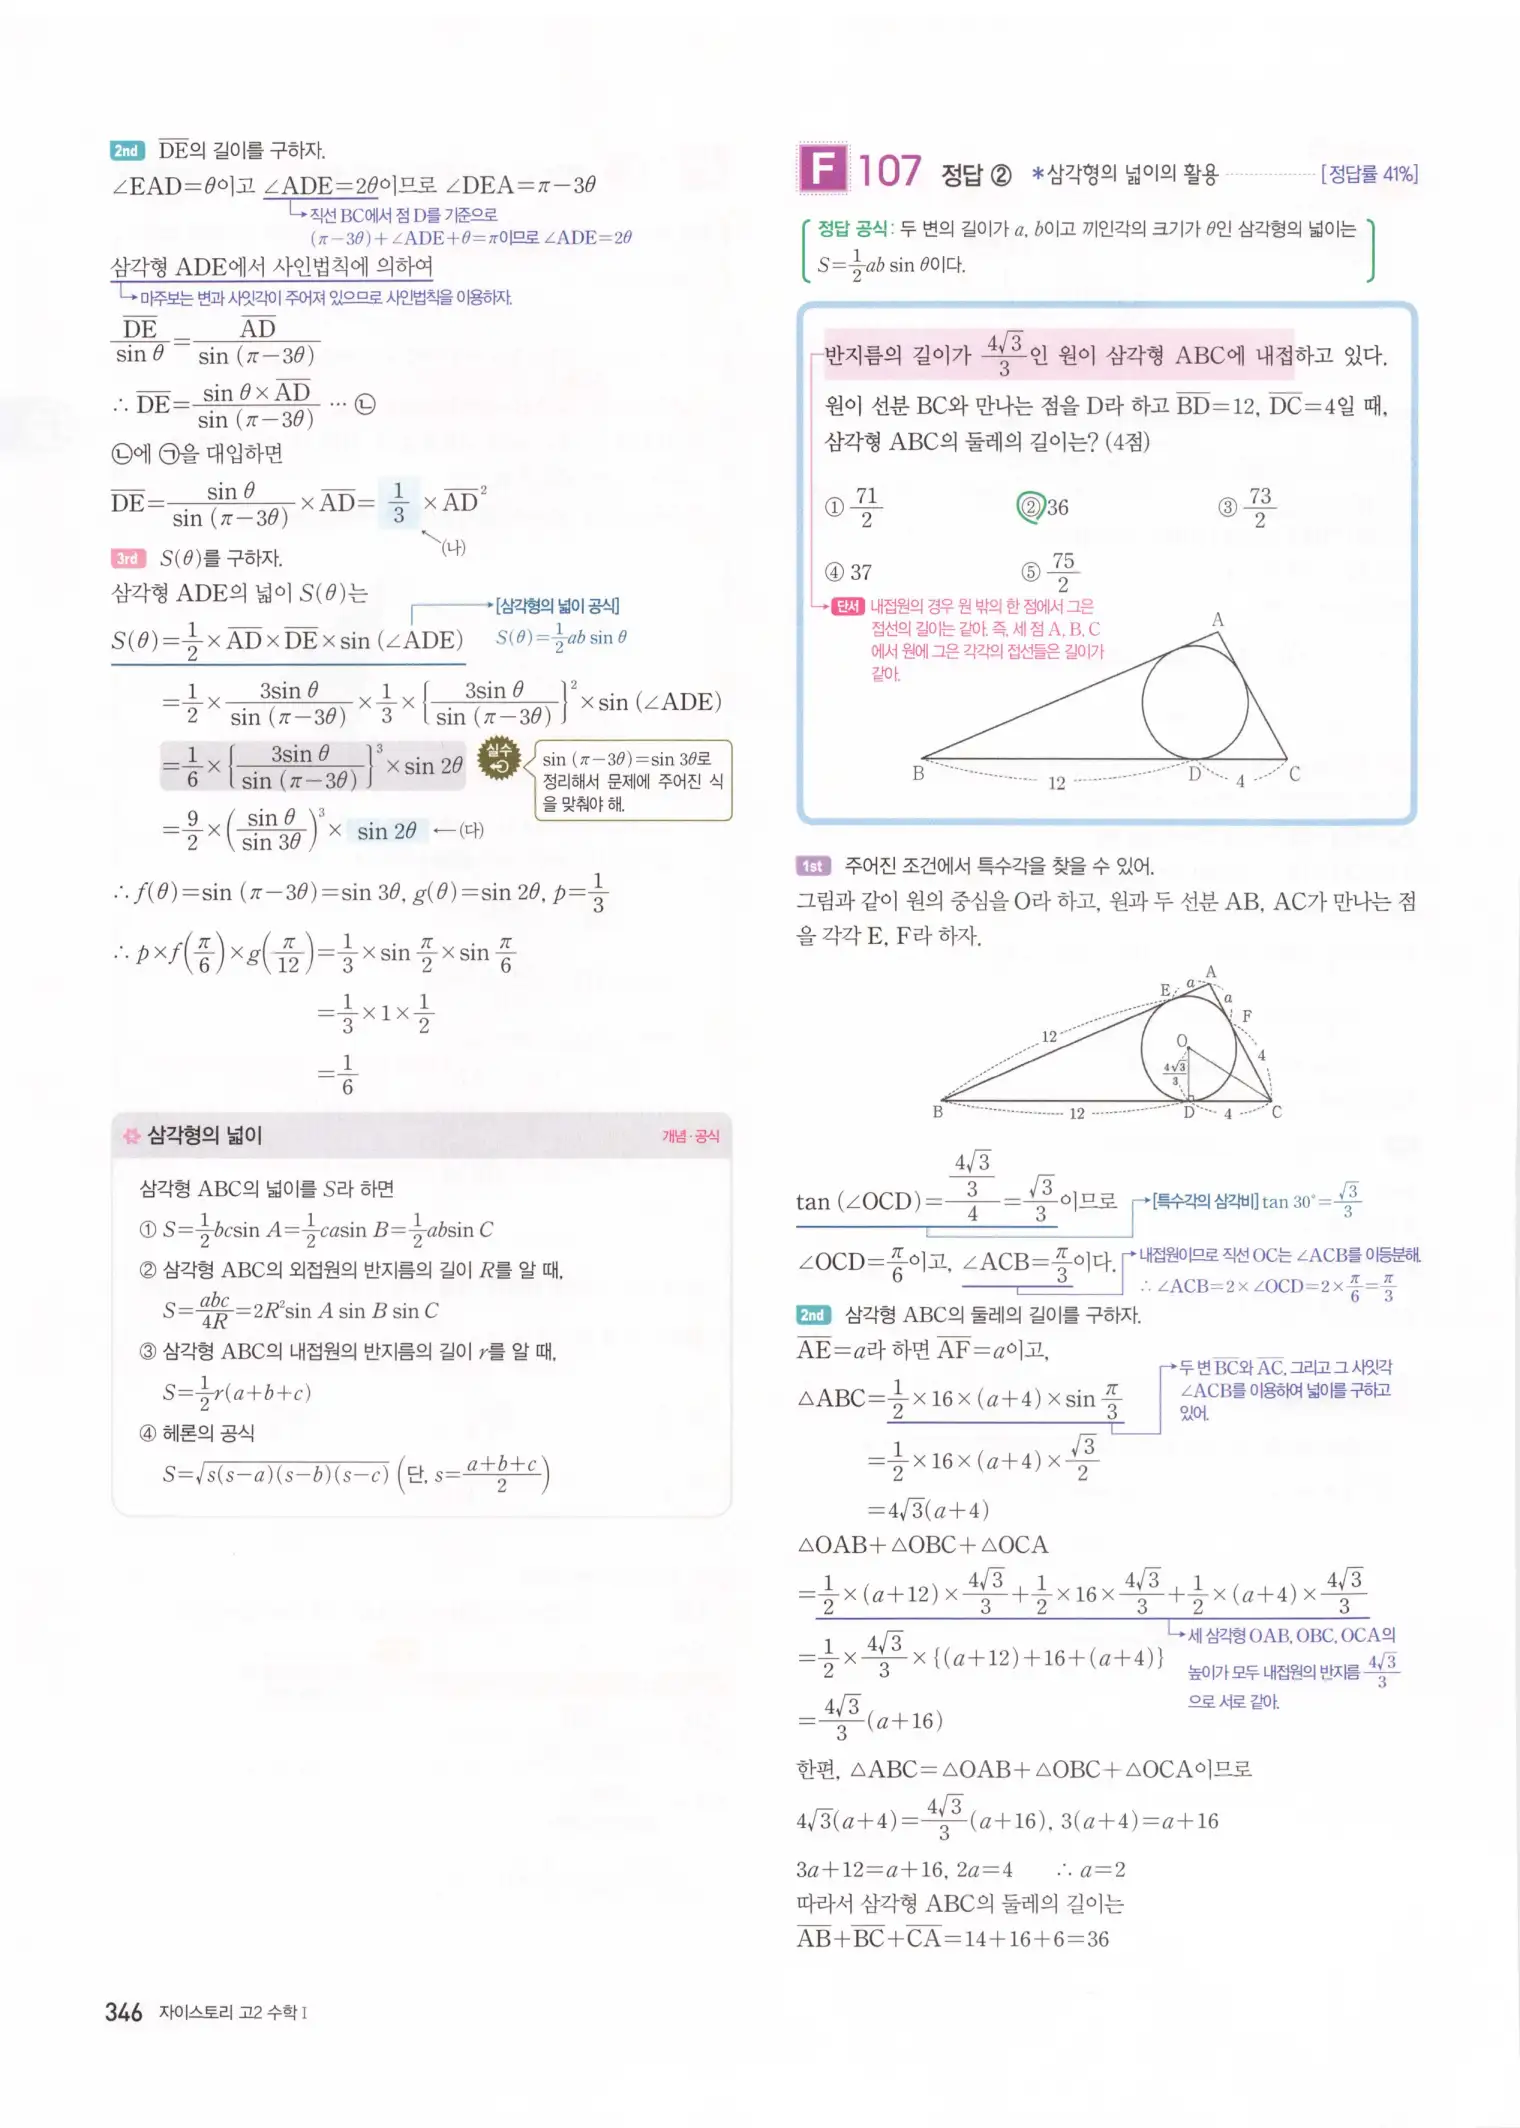 2nd DE의 길이를 구하자.
∠EAD=θ이고 ∠ADE=2θ이므로 ∠DEA=π-3θ
직선 BC에서 점 D를 기준으로
(π-3θ)+∠ADE+θ=π이므로 ∠ADE=2θ
삼각형 ADE에서 사인법칙에 의하여
마주보는 변과 사잇각이 주어져 있으므로 사인법칙을 이용하자.
DE/sin θ = AD/sin (π-3θ)
∴ DE= sin θ×AD/sin (π-3θ) … ㉡
㉡에 ㉠을 대입하면
DE= sin θ/sin (π-3θ) ×AD= 1/3 ×AD²
(나)
3rd S(θ)를 구하자.
삼각형 ADE의 넓이 S(θ)는
[삼각형의 넓이 공식]
S(θ)=1/2×AD×DE×sin (∠ADE)
S(θ)=1/2 ab sin θ
=1/2× 3sin θ/sin (π-3θ) ×1/3×{3sin θ/sin (π-3θ)}²×sin (∠ADE)
=1/6×{3sin θ/sin (π-3θ)}³×sin 2θ
실수
sin (π-3θ)=sin 3θ로
정리해서 문제에 주어진 식
을 맞춰야 해.
=9/2×(sin θ/sin 3θ)³× sin 2θ ←(다)
∴ f(θ)=sin (π-3θ)=sin 3θ, g(θ)=sin 2θ, p=1/3
∴ p×f(π/6)×g(π/12)=1/3×sin π/2×sin π/6
=1/3×1×1/2
=1/6
삼각형의 넓이 개념·공식
삼각형 ABC의 넓이를 S라 하면
① S=1/2 bcsin A=1/2 casin B=1/2 absin C
② 삼각형 ABC의 외접원의 반지름의 길이 R를 알 때,
S=abc/4R=2R²sin A sin B sin C
③ 삼각형 ABC의 내접원의 반지름의 길이 r를 알 때,
S=1/2 r(a+b+c)
④ 헤론의 공식
S=√s(s-a)(s-b)(s-c) (단, s=(a+b+c)/2)
346 자이스토리 고2 수학 I
F 107 정답 ② *삼각형의 넓이의 활용 [정답률 41%]
정답 공식: 두 변의 길이가 a, b이고 끼인각의 크기가 θ인 삼각형의 넓이는
S=1/2 ab sin θ이다.
반지름의 길이가 4√3/3인 원이 삼각형 ABC에 내접하고 있다.
원이 선분 BC와 만나는 점을 D라 하고 BD=12, DC=4일 때,
삼각형 ABC의 둘레의 길이는? (4점)
① 71/2 ② 36 ③ 73/2
④ 37 ⑤ 75/2
단서 내접원의 경우 원 밖의 한 점에서 그은
접선의 길이는 같아. 즉, 세 점 A, B, C
에서 원에 그은 각각의 접선들은 길이가
같아.
A
B 12 D 4 C
1st 주어진 조건에서 특수각을 찾을 수 있어.
그림과 같이 원의 중심을 O라 하고, 원과 두 선분 AB, AC가 만나는 점
을 각각 E, F라 하자.
A
E a a
F
12 O 4
4√3/3
B 12 D 4 C
tan (∠OCD)= (4√3/3)/4 = √3/3이므로
[특수각의 삼각비] tan 30°=√3/3
∠OCD=π/6이고, ∠ACB=π/3이다.
내접원이므로 직선 OC는 ∠ACB를 이등분해.
∴ ∠ACB=2×∠OCD=2×π/6=π/3
2nd 삼각형 ABC의 둘레의 길이를 구하자.
AE=a라 하면 AF=a이고,
△ABC=1/2×16×(a+4)×sin π/3
두 변 BC와 AC, 그리고 그 사잇각
∠ACB를 이용하여 넓이를 구하고
있어.
=1/2×16×(a+4)×√3/2
=4√3(a+4)
△OAB+△OBC+△OCA
=1/2×(a+12)×4√3/3+1/2×16×4√3/3+1/2×(a+4)×4√3/3
세 삼각형 OAB, OBC, OCA의
높이가 모두 내접원의 반지름 4√3/3
으로 서로 같아.
=1/2×4√3/3×{(a+12)+16+(a+4)}
=4√3/3(a+16)
한편, △ABC=△OAB+△OBC+△OCA이므로
4√3(a+4)=4√3/3(a+16), 3(a+4)=a+16
3a+12=a+16, 2a=4 ∴ a=2
따라서 삼각형 ABC의 둘레의 길이는
AB+BC+CA=14+16+6=36